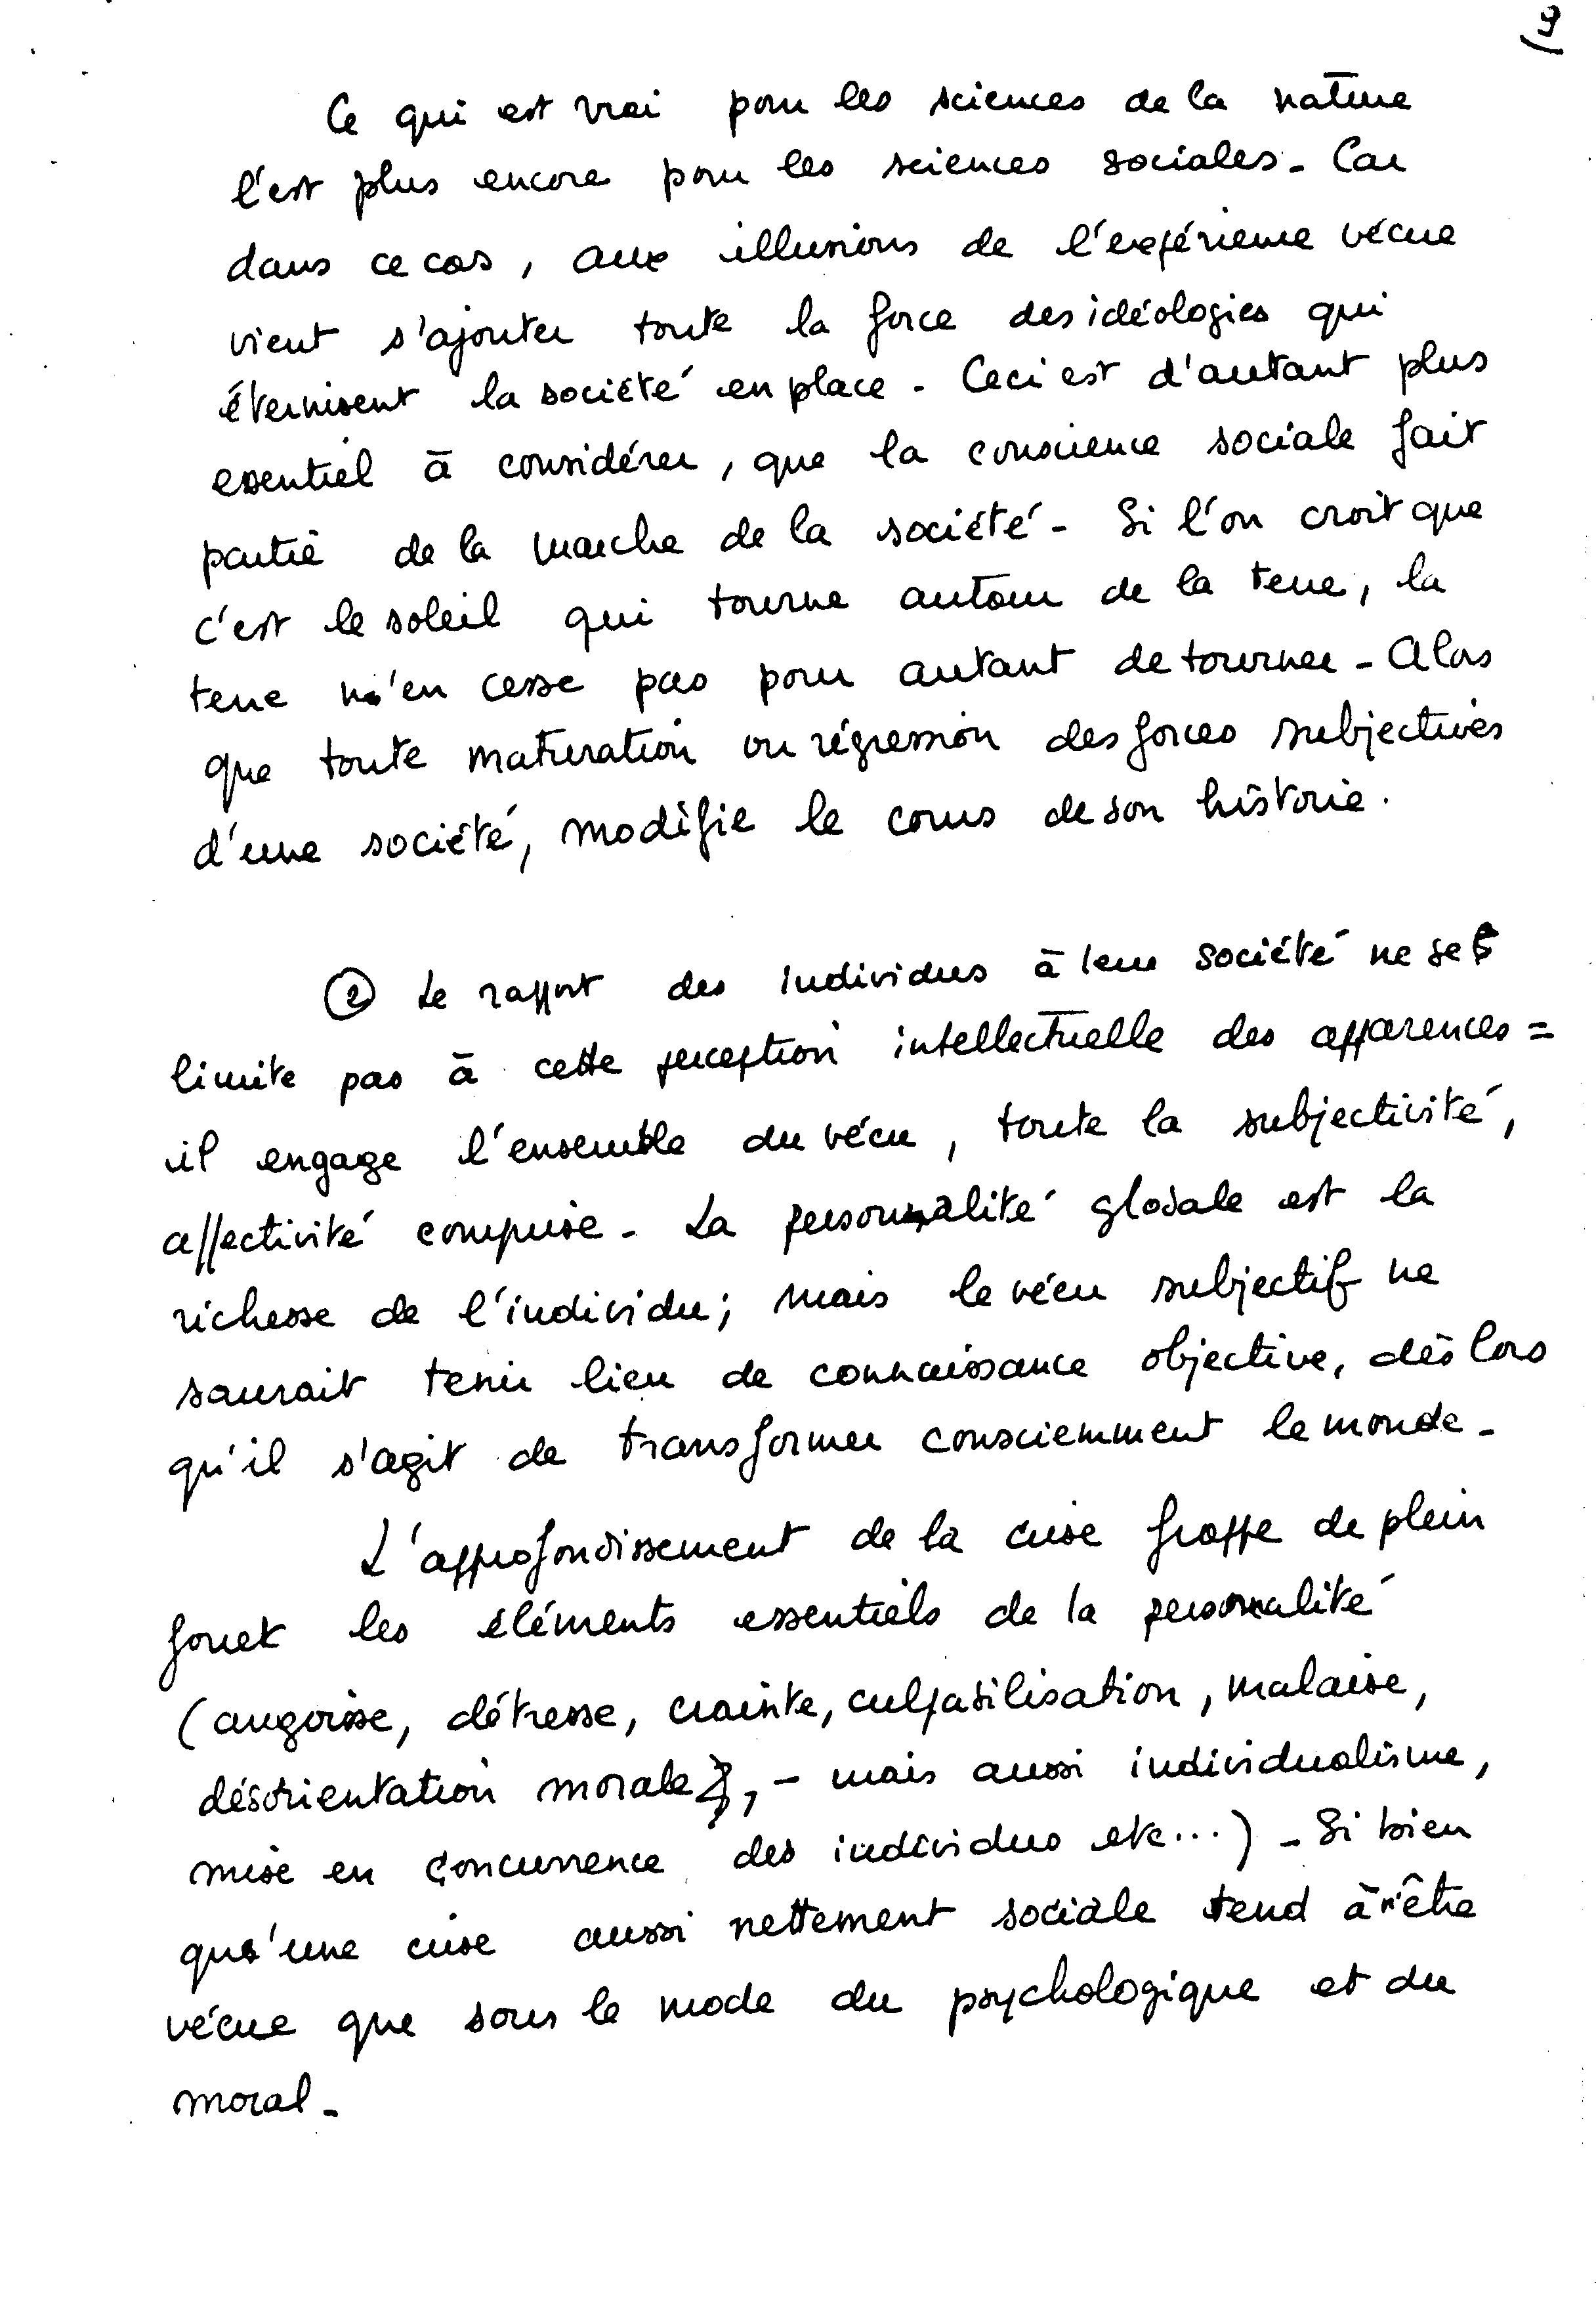 9
Ce qui est vrai pour les sciences de la nature
l'est plus encore pour les sciences sociales. Car
dans ce cas, aux illusions de l'expérience vécue
vient s'ajouter toute la force des idéologies qui
éternisent la société en place. Ceci est d'autant plus
essentiel à considérer, que la conscience sociale fait
partie de la marche de la société. Si l'on croit que
c'est le soleil qui tourne autour de la terre, la
terre n'en cesse pas pour autant de tourner. Alors
que toute maturation ou régression des forces subjectives
d'une société, modifie le cours de son histoire.
② Le rapport des individus à leur société ne se
limite pas à cette perception intellectuelle des apparences =
il engage l'ensemble du vécu, toute la subjectivité,
affectivité comprise. La personnalité globale est la
richesse de l'individu ; mais le vécu subjectif ne
saurait tenir lieu de connaissance objective, dès lors
qu'il s'agit de transformer consciemment le monde.
L'approfondissement de la crise frappe de plein
fouet les éléments essentiels de la personnalité
(angoisse, détresse, crainte, culpabilisation, malaise,
désorientation morale, - mais aussi individualisme,
mise en concurrence des individus etc...) - Si bien
qu'une crise aussi nettement sociale tend à n'être
vécue que sous le mode du psychologique et du
moral.